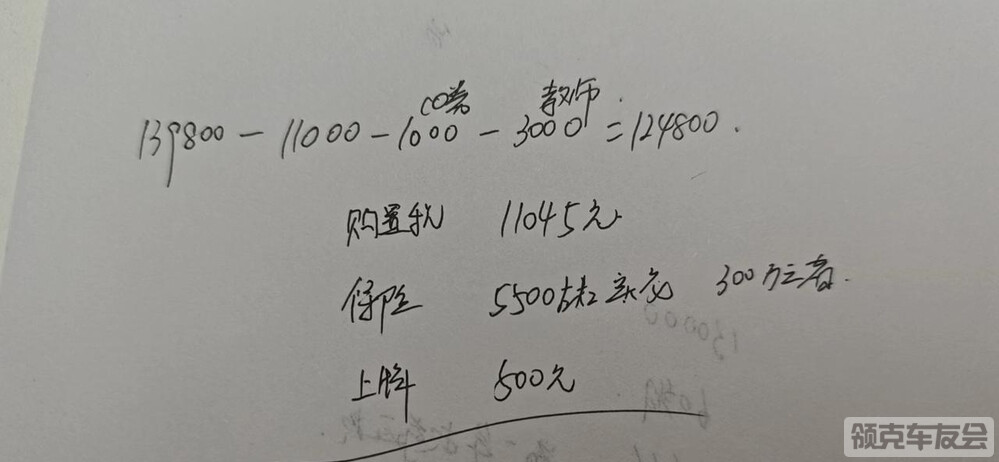 CO券 教师
139800-11000-1000-3000=124800.
购置税 11045元
保险 5500左右 300万三者.
上牌 500元
130000
领克车友会